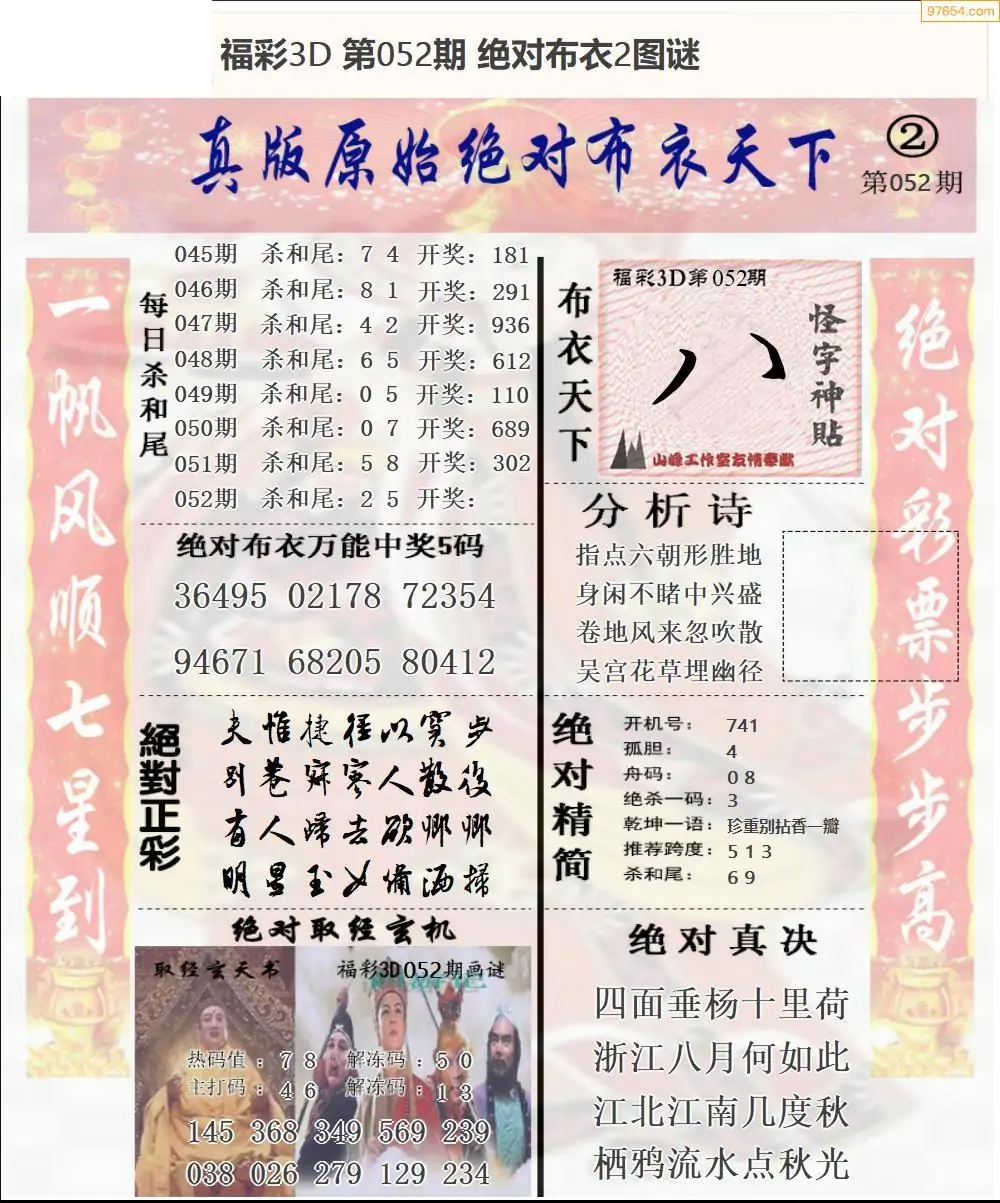 97654.com
福彩3D 第052期 绝对布衣2图谜
真版原始绝对布衣天下
②
第052期
一帆风顺七星到
每日杀和尾
045期 杀和尾：7 4 开奖：181
046期 杀和尾：8 1 开奖：291
047期 杀和尾：4 2 开奖：936
048期 杀和尾：6 5 开奖：612
049期 杀和尾：0 5 开奖：110
050期 杀和尾：0 7 开奖：689
051期 杀和尾：5 8 开奖：302
052期 杀和尾：2 5 开奖：
绝对布衣万能中奖5码
36495 02178 72354
94671 68205 80412
絕對正彩
夫惟捷径以窘步
别巷寂寥人散後
有人归去欲卿卿
明星玉女備洒掃
绝对取经玄机
取经玄天书
福彩3D052期画谜
热码值：7 8 解冻码：5 0
主打码：4 6 解冻码：1 3
145 368 349 569 239
038 026 279 129 234
布衣天下
福彩3D第052期
八
怪字神貼
山峰工作室友情奉献
分析诗
指点六朝形胜地
身闲不睹中兴盛
卷地风来忽吹散
吴宫花草埋幽径
绝对精简
开机号：741
孤胆：4
舟码：0 8
绝杀一码：3
乾坤一语：珍重别拈香一瓣
推荐跨度：5 1 3
杀和尾：6 9
绝对真决
四面垂杨十里荷
浙江八月何如此
江北江南几度秋
栖鸦流水点秋光
绝对彩票步步高